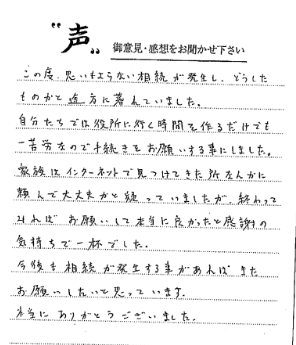 "声" 御意見・感想をお聞かせ下さい
この度、思いもよらない相続が発生し、どうした
ものかと途方に暮れていました。
自分たちでは役所に行く時間を作るだけでも
一苦労なので手続きをお願いする事にしました。
家族はインターネットで見つけてきた所なんかに
頼んで大丈夫かと疑っていましたが、終わって
みればお願いして本当に良かったと感謝の
気持ちで一杯でした。
今後も相続が発生する事があればまた
お願いしたいと思っています。
本当にありがとうございました。